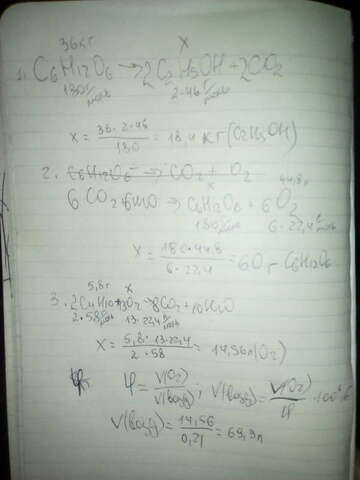 36 кг x
1. C₆H₁₂O₆ → 2C₂H₅OH + 2CO₂
180 г/моль 2·46 г/моль
x = 36·2·46 / 180 = 18,4 кг (C₂H₅OH)
2. C₆H₁₂O₆ → CO₂ + O₂
x 44,8 л
6CO₂ + 6H₂O → C₆H₁₂O₆ + 6O₂
180 г/моль 6·22,4 л/моль
x = 180·44,8 / 6·22,4 = 60 г C₆H₁₂O₆
5,8 г x
3. 2C₄H₁₀ + 13O₂ → 8CO₂ + 10H₂O
2·58 г/моль 13·22,4 л/моль
x = 5,8·13·22,4 / 2·58 = 14,56 л (O₂)
φ = V(O₂) / V(возд) ; V(возд) = V(O₂) / φ · 100%
V(возд) = 14,56 / 0,21 = 69,3 л